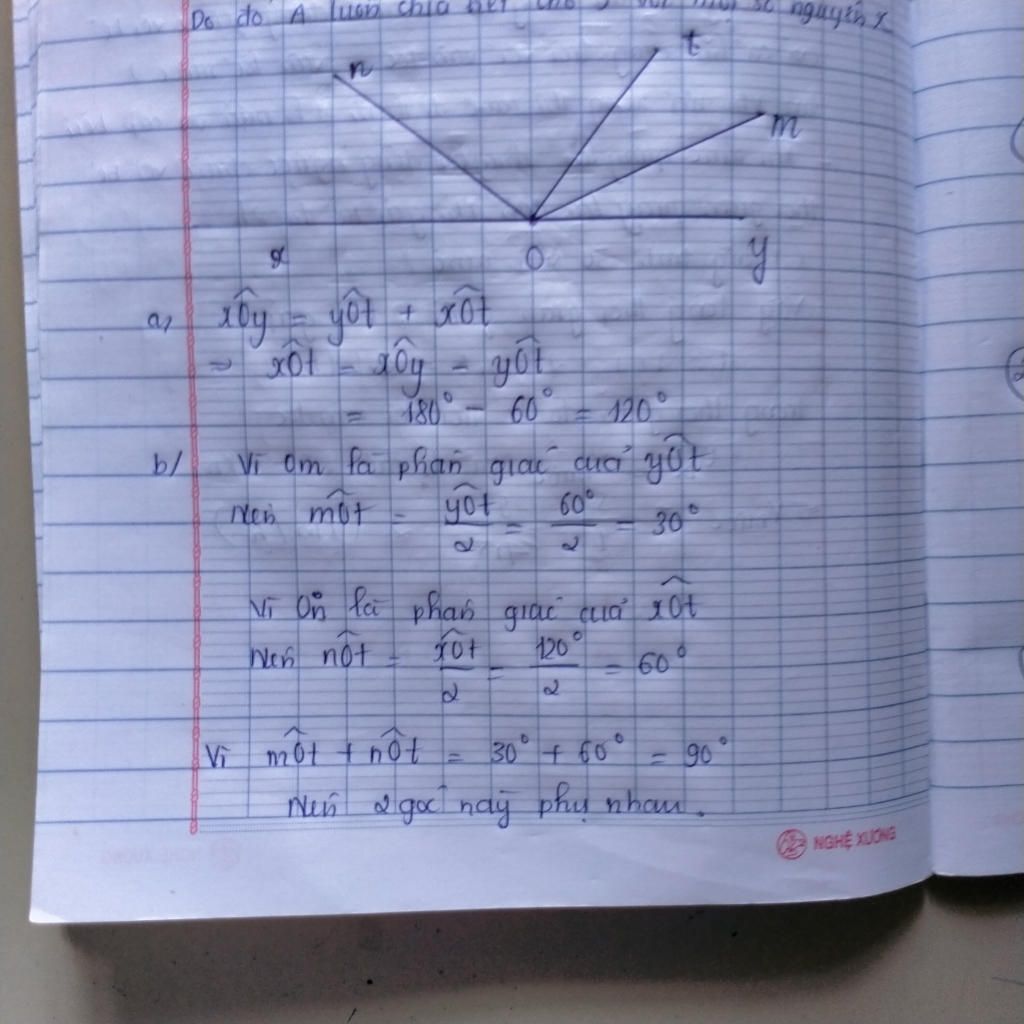 Do đó A luôn chia hết cho với mọi số nguyên x
n
t
m
x O y
a, xÔy = yÔt + xÔt
⇒ xÔt = xÔy - yÔt
= 180° - 60° = 120°
b/ Vì Om là phân giác của yÔt
Nên mÔt = yÔt/2 = 60°/2 = 30°
Vì On là phân giác của xÔt
Nên nÔt = xÔt/2 = 120°/2 = 60°
Vì mÔt + nÔt = 30° + 60° = 90°
Nên 2 góc này phụ nhau.
NGHỆ XƯƠNG